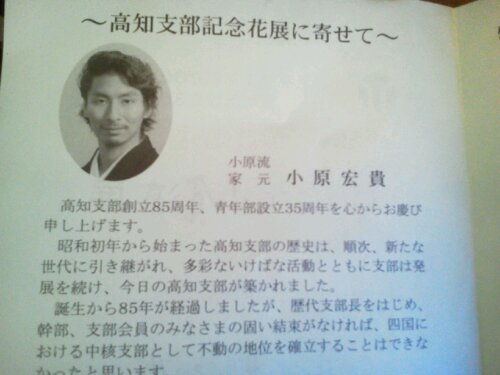 ～高知支部記念花展に寄せて～
小原流
家元 小原宏貴
高知支部創立85周年、青年部設立35周年を心からお慶び
申し上げます。
昭和初年から始まった高知支部の歴史は、順次、新たな
世代に引き継がれ、多彩ないけばな活動とともに支部は発
展を続け、今日の高知支部が築かれました。
誕生から85年が経過しましたが、歴代支部長をはじめ、
幹部、支部会員のみなさまの固い結束がなければ、四国に
おける中核支部として不動の地位を確立することはできな
かったと思います。